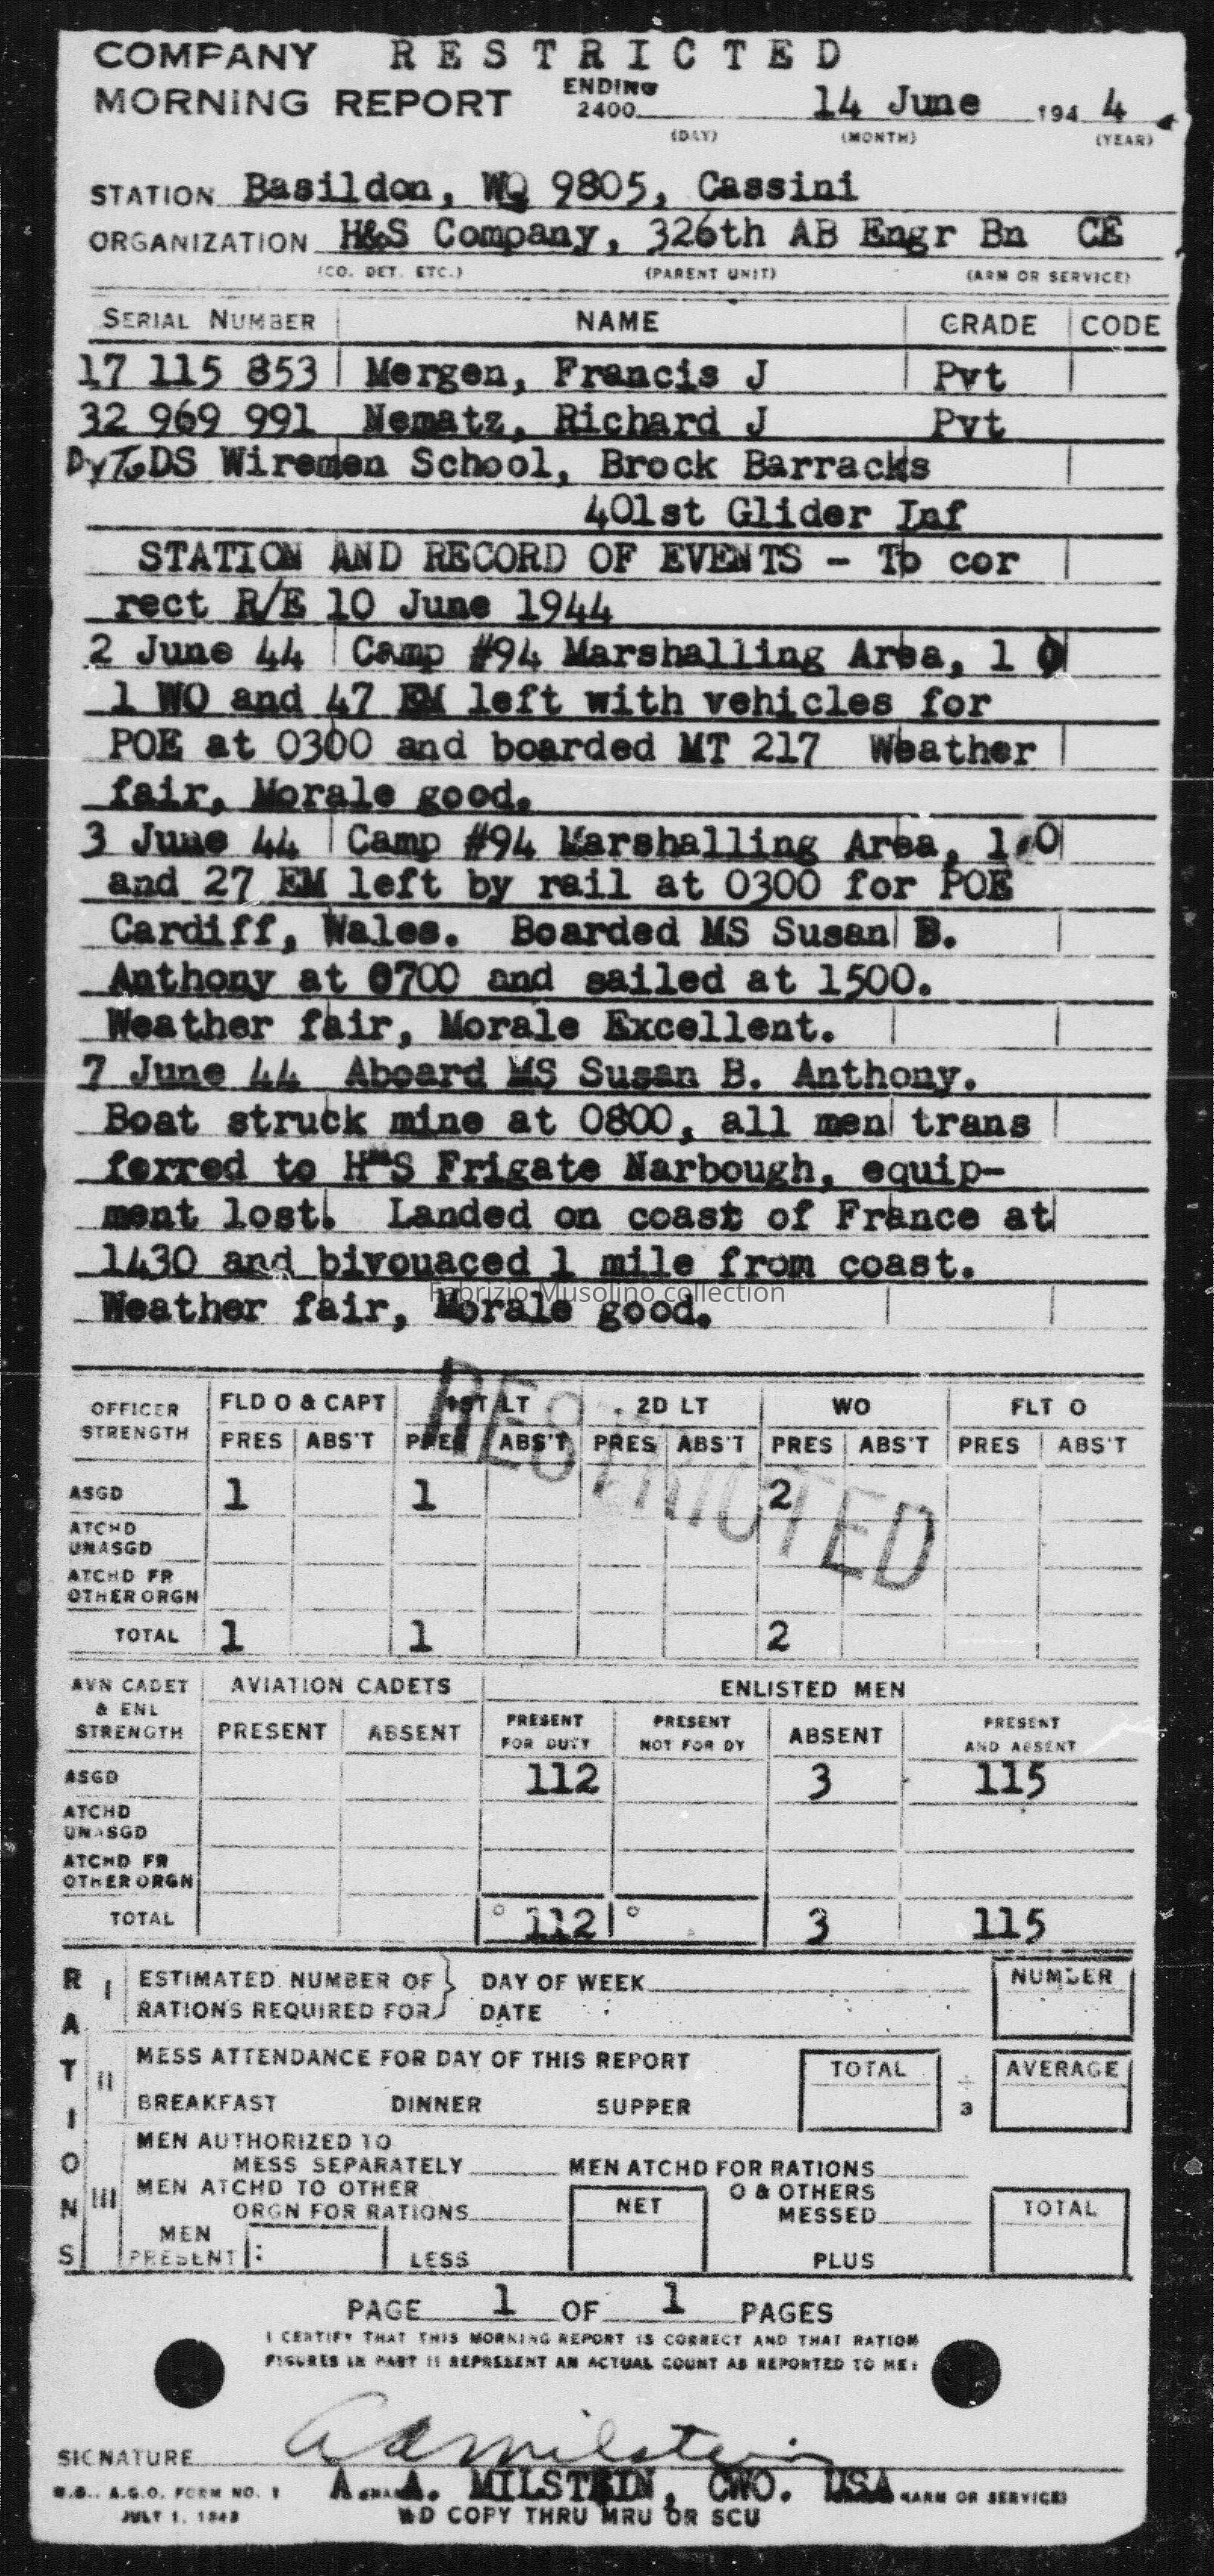 COMPANY RESTRICTED
MORNING REPORT ENDING 2400 14 June 194 4
(DAY) (MONTH) (YEAR)
STATION Basildon, WQ 9805, Cassini
ORGANIZATION H&S Company, 326th AB Engr Bn CE
(CO. DET. ETC.) (PARENT UNIT) (ARM OR SERVICE)
SERIAL NUMBER NAME GRADE CODE
17 115 853 Mergen, Francis J Pvt
32 969 991 Nematz, Richard J Pvt
Dy To DS Wiremen School, Brock Barracks
401st Glider Inf
STATION AND RECORD OF EVENTS - To cor
rect R/E 10 June 1944
2 June 44 Camp #94 Marshalling Area, 1 O
1 WO and 47 EM left with vehicles for
POE at 0300 and boarded MT 217 Weather
fair, Morale good.
3 June 44 Camp #94 Marshalling Area, 1 O
and 27 EM left by rail at 0300 for POE
Cardiff, Wales. Boarded MS Susan B.
Anthony at 0700 and sailed at 1500.
Weather fair, Morale Excellent.
7 June 44 Aboard MS Susan B. Anthony.
Boat struck mine at 0800, all men trans
ferred to HMS Frigate Narbough, equip-
ment lost. Landed on coast of France at
1430 and bivouaced 1 mile from coast.
Fabrizio Musolino collection
Weather fair, Morale good.
RESTRICTED
OFFICER STRENGTH FLD O & CAPT 1ST LT 2D LT WO FLT O
PRES ABS'T PRES ABS'T PRES ABS'T PRES ABS'T PRES ABS'T
ASGD 1 1 2
ATCHD UNASGD
ATCHD FR OTHER ORGN
TOTAL 1 1 2
AVN CADET & ENL STRENGTH AVIATION CADETS ENLISTED MEN
PRESENT ABSENT PRESENT FOR DUTY PRESENT NOT FOR DY ABSENT PRESENT AND ABSENT
ASGD 112 3 115
ATCHD UNASGD
ATCHD FR OTHER ORGN
TOTAL 112 3 115
RATIONS
I ESTIMATED NUMBER OF DAY OF WEEK NUMBER
RATIONS REQUIRED FOR DATE
II MESS ATTENDANCE FOR DAY OF THIS REPORT TOTAL ÷ 3 AVERAGE
BREAKFAST DINNER SUPPER
III MEN AUTHORIZED TO
MESS SEPARATELY MEN ATCHD FOR RATIONS
MEN ATCHD TO OTHER O & OTHERS
ORGN FOR RATIONS NET MESSED TOTAL
MEN PRESENT : LESS PLUS
PAGE 1 OF 1 PAGES
I CERTIFY THAT THIS MORNING REPORT IS CORRECT AND THAT RATION
FIGURES IN PART II REPRESENT AN ACTUAL COUNT AS REPORTED TO ME:
SIGNATURE A A Milstein
W.D., A.G.O. FORM NO. 1 A. A. MILSTEIN, CWO. USA (ARM OR SERVICE)
JULY 1, 1943 WD COPY THRU MRU OR SCU